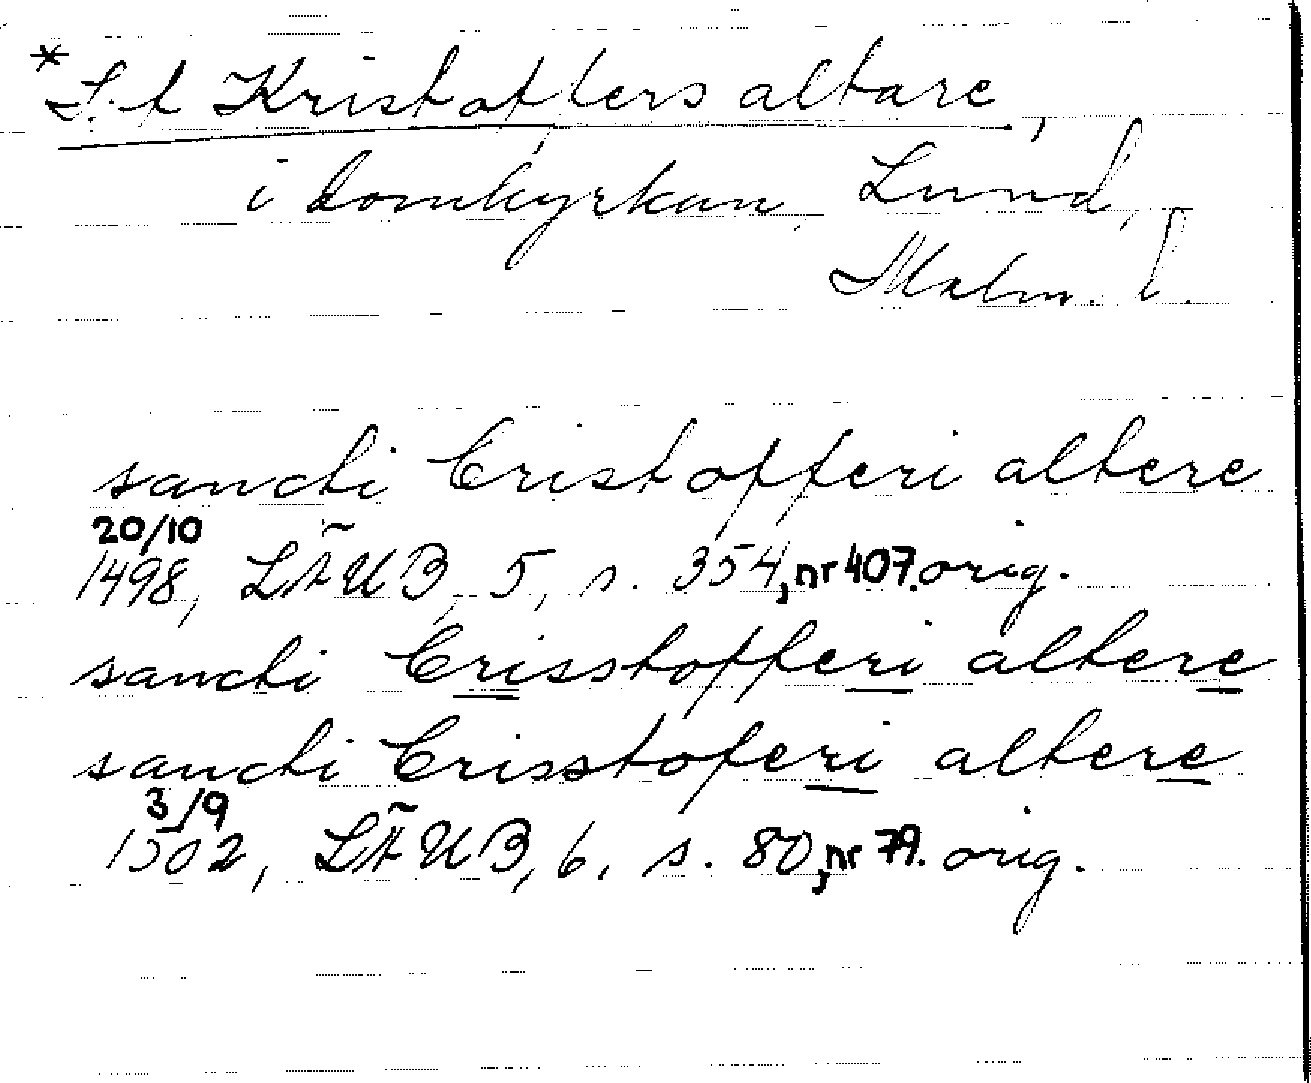 *S:t Kristoffers altare,
i domkyrkan, Lund,
Malm. l.
sancti Cristofferi altere
20/10
1498, LÄUB, 5, s. 354, nr 407. orig.
sancti Crisstofferi altere
sancti Crisstoferi altere
3/9
1502, LÄUB, 6, s. 80, nr 79. orig.